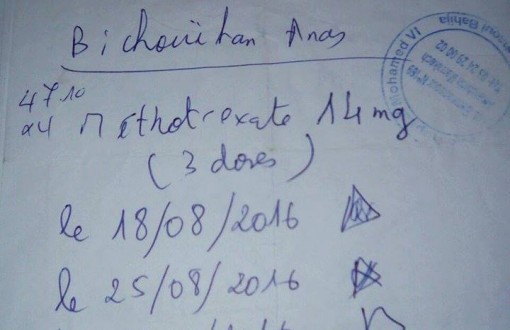 Bichouihan Anas
4710
x4 Méthotrexate 14mg
(3 doses)
le 18/08/2016
le 25/08/2016
Mohamed VI